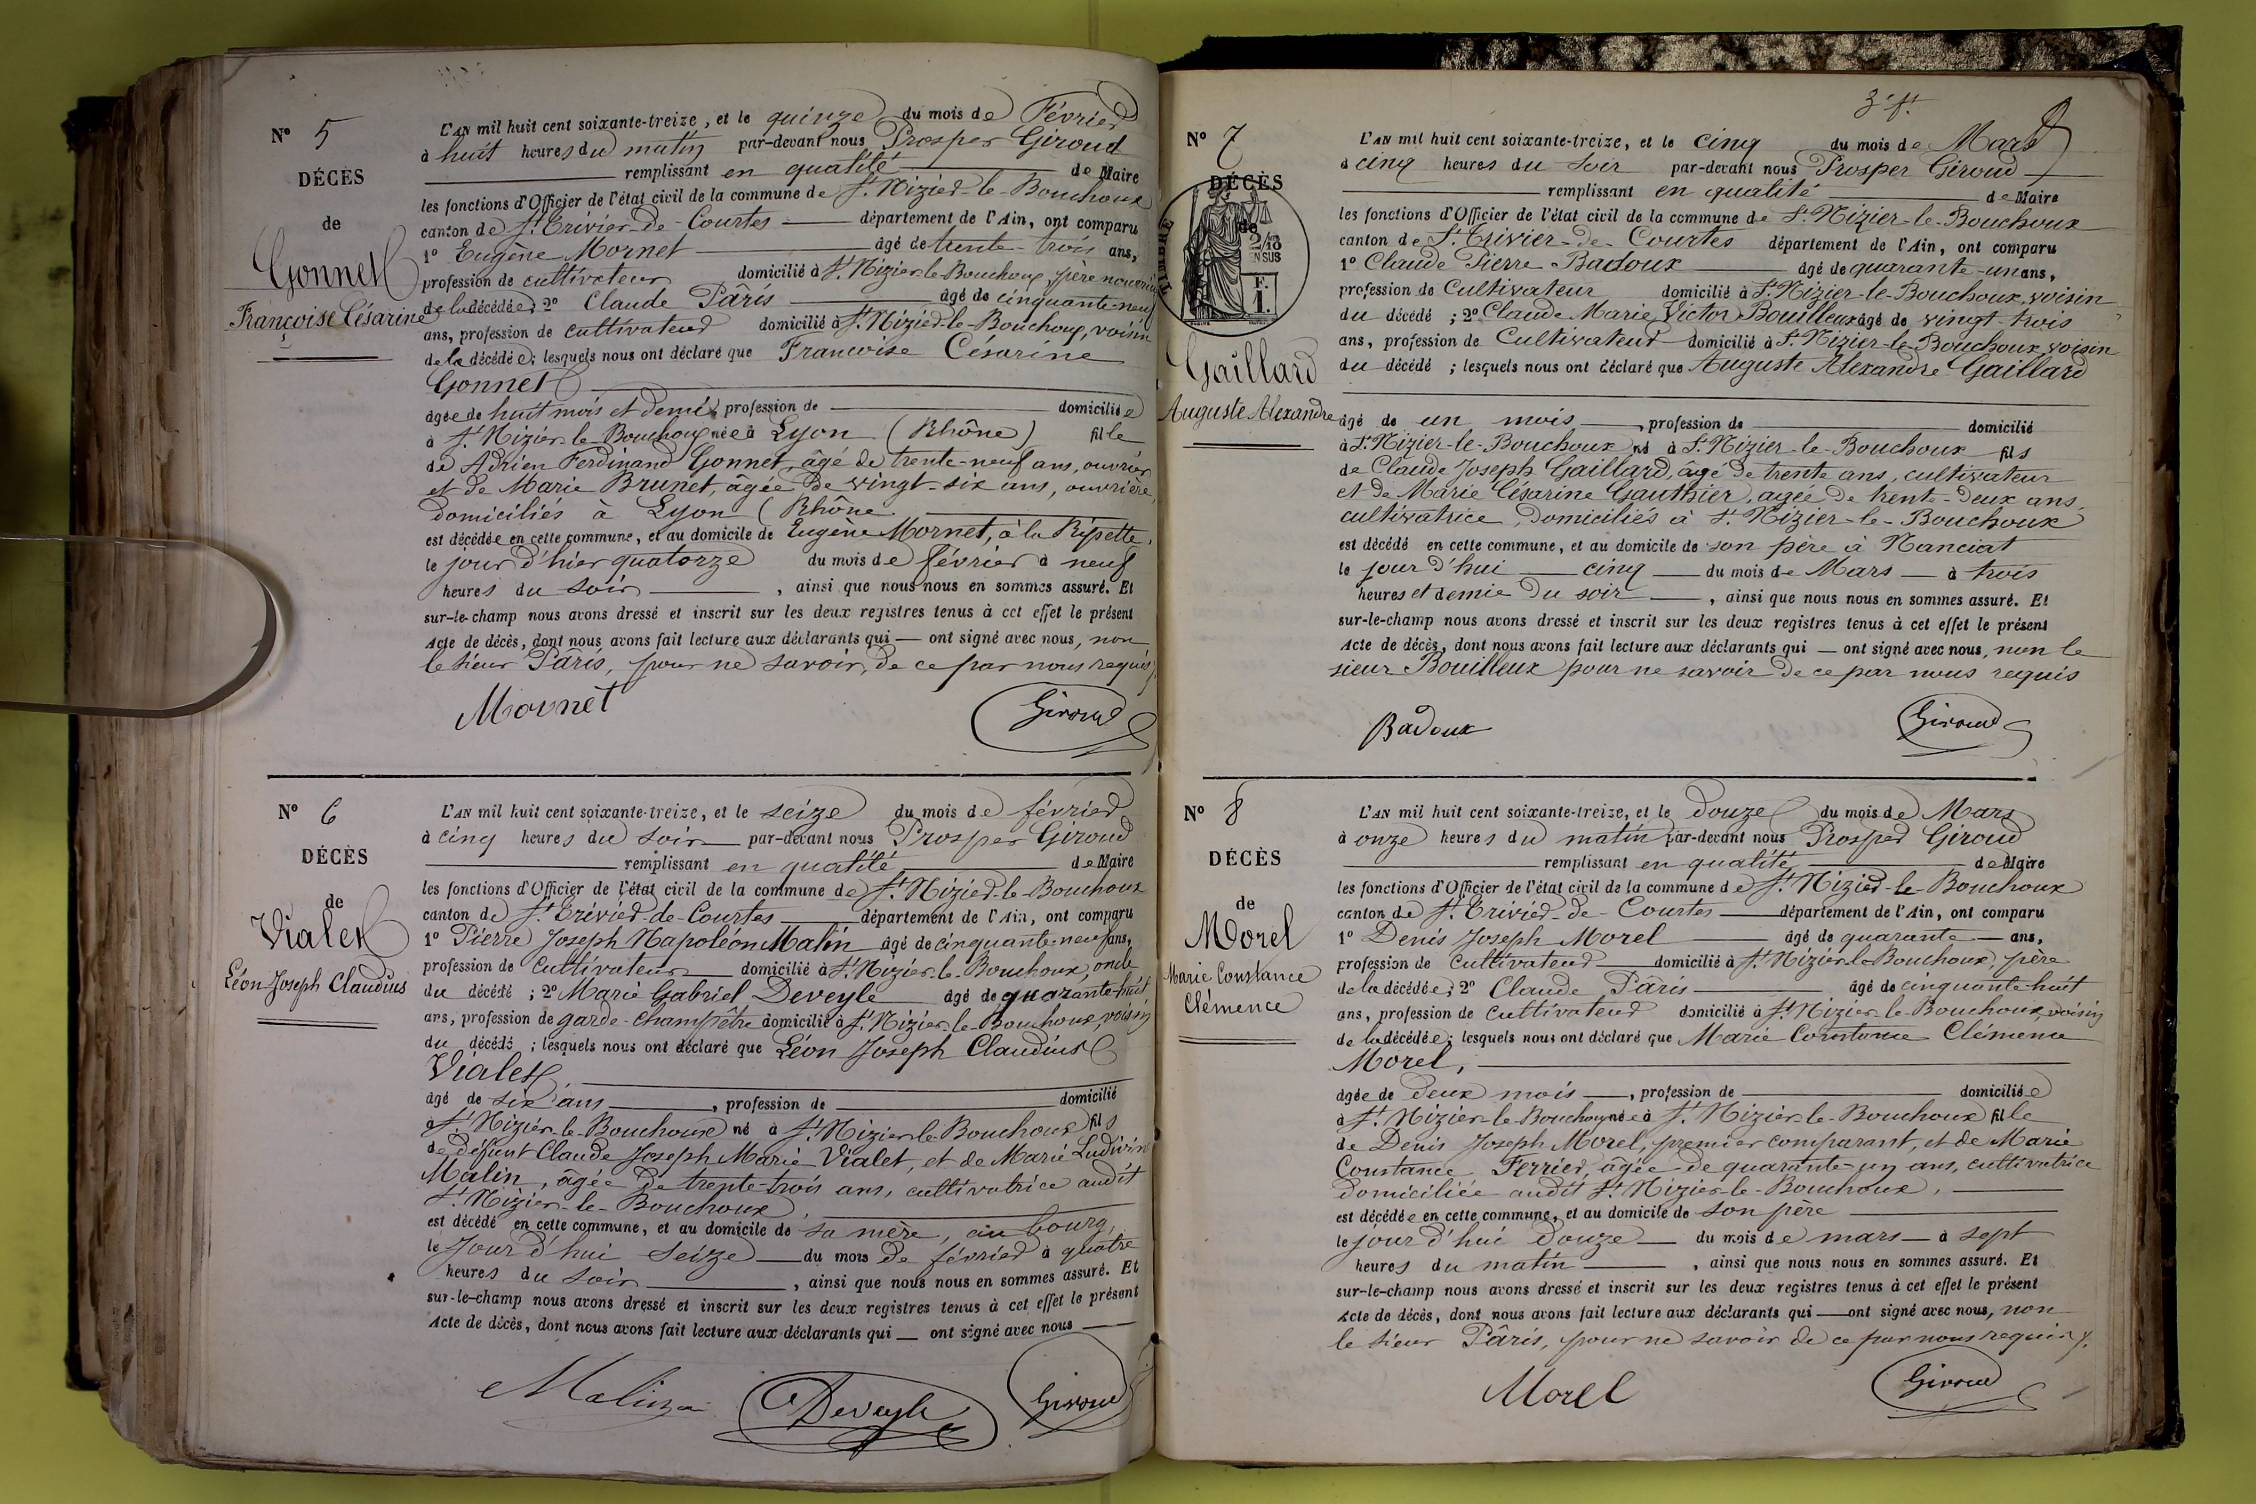 N° 5
DÉCÈS
de
Gonnet
Françoise Césarine
L'AN mil huit cent soixante-treize, et le quinze du mois de Février
à huit heures du matin par-devant nous Prosper Giroud
remplissant en qualité de Maire
les fonctions d'Officier de l'état civil de la commune de St Nizier-le-Bouchoux
canton de St Trivier-de-Courtes département de l'Ain, ont comparu
1° Eugène Mornet âgé de trente-trois ans,
profession de cultivateur domicilié à St Nizier-le-Bouchoux, père nourricier
de la décédée; 2° Claude Pâris âgé de cinquante-neuf
ans, profession de cultivateur domicilié à St Nizier-le-Bouchoux, voisin
de la décédée; lesquels nous ont déclaré que Françoise Césarine
Gonnet
âgée de huit mois et demi, profession de domiciliée
à St Nizier-le-Bouchoux née à Lyon (Rhône) fille
de Adrien Ferdinand Gonnet, âgé de trente-neuf ans, ouvrier
et de Marie Brunet, âgée de vingt-six ans, ouvrière,
domiciliés à Lyon (Rhône.
est décédée en cette commune, et au domicile de Eugène Mornet, à la Ripette,
le jour d'hier quatorze du mois de février à neuf
heures du soir, ainsi que nous nous en sommes assuré. Et
sur-le-champ nous avons dressé et inscrit sur les deux registres tenus à cet effet le présent
Acte de décès, dont nous avons fait lecture aux déclarants qui — ont signé avec nous, non
le sieur Pâris, pour ne savoir, de ce par nous requis
Mornet Giroud
N° 6
DÉCÈS
de
Vialet
Léon Joseph Claudius
L'AN mil huit cent soixante-treize, et le seize du mois de février
à cinq heures du soir par-devant nous Prosper Giroud
remplissant en qualité de Maire
les fonctions d'Officier de l'état civil de la commune de St Nizier-le-Bouchoux
canton de St Trivier-de-Courtes département de l'Ain, ont comparu
1° Pierre Joseph Napoléon Malin âgé de cinquante-neuf ans,
profession de Cultivateur domicilié à St Nizier-le-Bouchoux, oncle
du décédé; 2° Marie Gabriel Deveyle âgé de quarante-huit
ans, profession de garde-champêtre domicilié à St Nizier-le-Bouchoux, voisin
du décédé; lesquels nous ont déclaré que Léon Joseph Claudius
Vialet,
âgé de six ans, profession de domicilié
à St Nizier-le-Bouchoux né à St Nizier-le-Bouchoux fils
de défunt Claude Joseph Marie Vialet, et de Marie Ludivine
Malin, âgée de trente-trois ans, cultivatrice audit
St Nizier-le-Bouchoux,
est décédé en cette commune, et au domicile de sa mère, au bourg,
le jour d'hui seize du mois de février à quatre
heures du soir, ainsi que nous nous en sommes assuré. Et
sur-le-champ nous avons dressé et inscrit sur les deux registres tenus à cet effet le présent
Acte de décès, dont nous avons fait lecture aux déclarants qui — ont signé avec nous
Malin Deveyle Giroud
3e ft
N° 7
DÉCÈS
de
TIMBRE
2/10
EN SUS
F.
1.
Gaillard
Auguste Alexandre
L'AN mil huit cent soixante-treize, et le cinq du mois de Mars
à cinq heures du soir par-devant nous Prosper Giroud
remplissant en qualité de Maire
les fonctions d'Officier de l'état civil de la commune de St Nizier-le-Bouchoux
canton de St Trivier-de-Courtes département de l'Ain, ont comparu
1° Claude Pierre Badoux âgé de quarante-un ans,
profession de Cultivateur domicilié à St Nizier-le-Bouchoux, voisin
du décédé; 2° Claude Marie Victor Bouilleux âgé de vingt-trois
ans, profession de Cultivateur domicilié à St Nizier-le-Bouchoux, voisin
du décédé; lesquels nous ont déclaré que Auguste Alexandre Gaillard
âgé de un mois, profession de domicilié
à St Nizier-le-Bouchoux né à St Nizier-le-Bouchoux fils
de Claude Joseph Gaillard, âgé de trente ans, cultivateur
et de Marie Césarine Gauthier, agée de trente-deux ans,
cultivatrice, domiciliés à St Nizier-le-Bouchoux
est décédé en cette commune, et au domicile de son père à Nanciat
le jour d'hui cinq du mois de Mars à trois
heures et demie du soir, ainsi que nous nous en sommes assuré. Et
sur-le-champ nous avons dressé et inscrit sur les deux registres tenus à cet effet le présent
Acte de décès, dont nous avons fait lecture aux déclarants qui — ont signé avec nous, non le
sieur Bouilleux pour ne savoir de ce par nous requis
Badoux Giroud
N° 8
DÉCÈS
de
Morel
Marie Constance
Clémence
L'AN mil huit cent soixante-treize, et le douze du mois de Mars
à onze heures du matin par-devant nous Prosper Giroud
remplissant en qualité de Maire
les fonctions d'Officier de l'état civil de la commune de St Nizier-le-Bouchoux
canton de St Trivier-de-Courtes département de l'Ain, ont comparu
1° Denis Joseph Morel âgé de quarante ans,
profession de Cultivateur domicilié à St Nizier-le-Bouchoux, père
de la décédée; 2° Claude Pâris âgé de cinquante-huit
ans, profession de Cultivateur domicilié à St Nizier-le-Bouchoux, voisin
de la décédée; lesquels nous ont déclaré que Marie Constance Clémence
Morel,
âgée de deux mois, profession de domiciliée
à St Nizier-le-Bouchoux née à St Nizier-le-Bouchoux fille
de Denis Joseph Morel, premier comparant, et de Marie
Constance Ferrier, âgée de quarante-un ans, cultivatrice
domiciliée audit St Nizier-le-Bouchoux,
est décédée en cette commune, et au domicile de son père
le jour d'hui douze du mois de mars à sept
heures du matin, ainsi que nous nous en sommes assuré. Et
sur-le-champ nous avons dressé et inscrit sur les deux registres tenus à cet effet le présent
Acte de décès, dont nous avons fait lecture aux déclarants qui — ont signé avec nous, non
le sieur Pâris, pour ne savoir de ce par nous requis
Morel Giroud